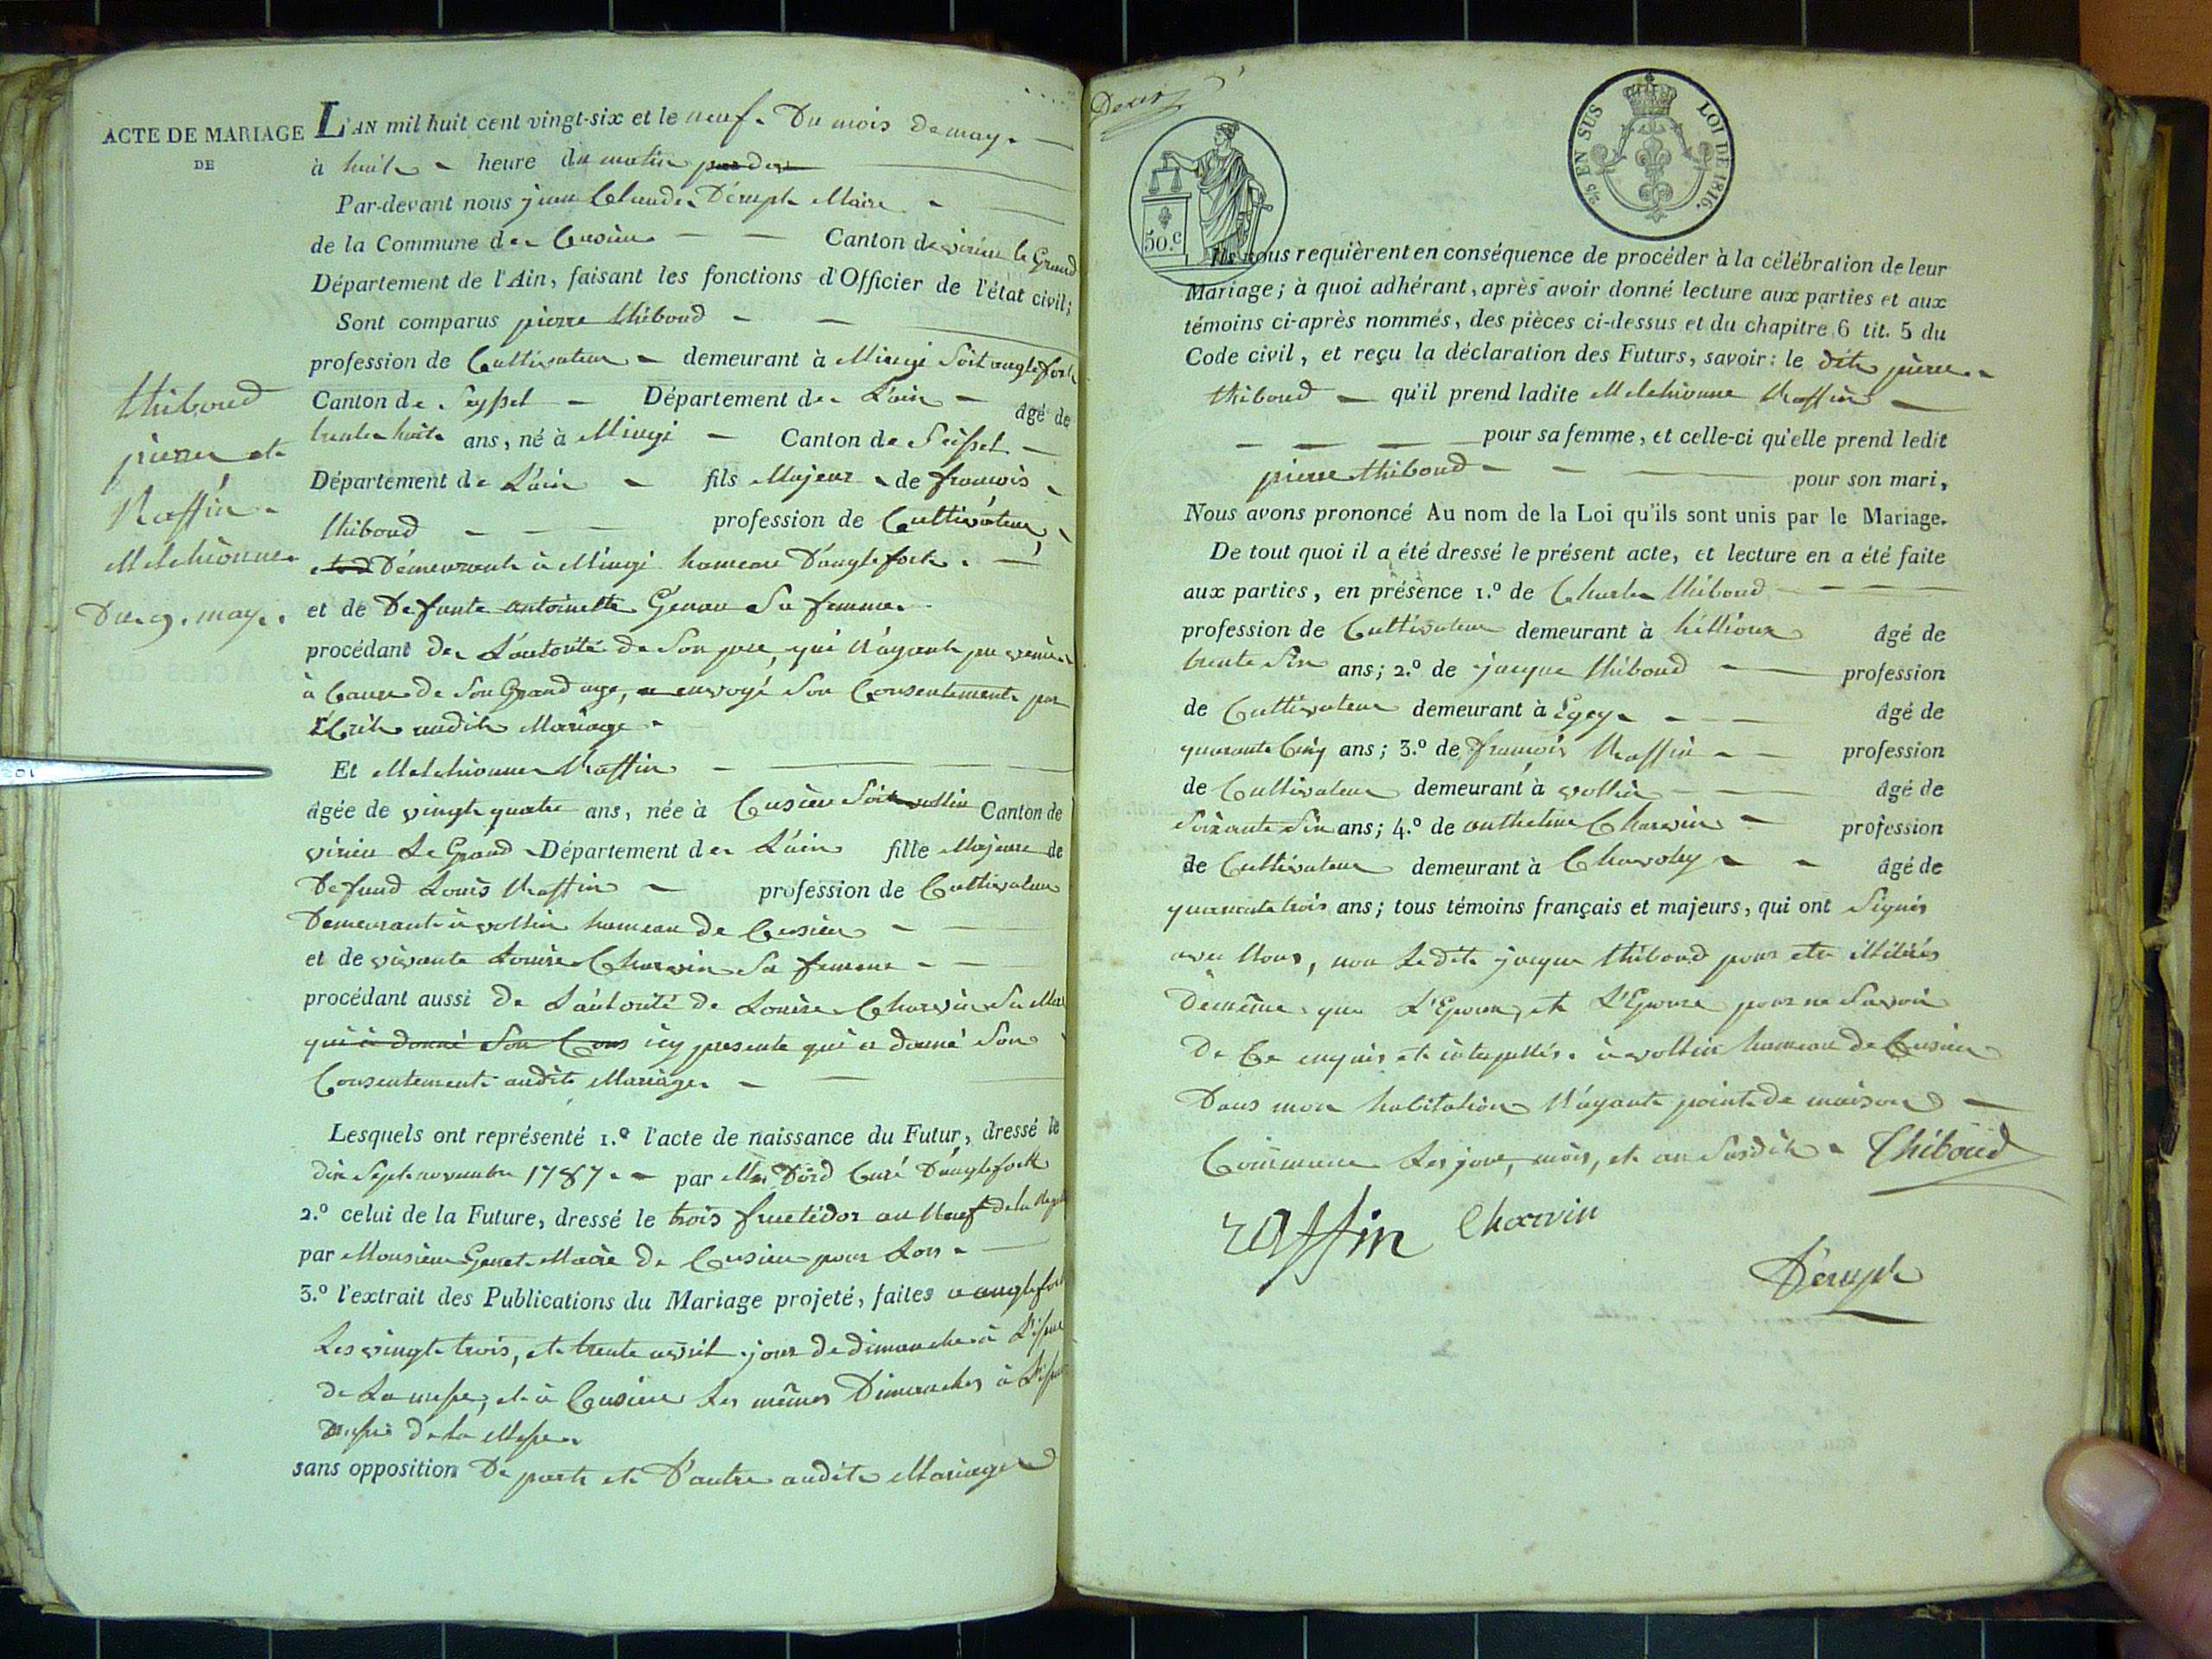 ACTE DE MARIAGE
DE
thiboud
pierre et
Raffin
Melchionne
Du 9. may.
L'AN mil huit cent vingt-six et le neuf Du mois de may
à huit heure du matin
Par-devant nous jean Claude Déruph Maire
de la Commune de Cusieu Canton de virieu le Grand
Département de l'Ain, faisant les fonctions d'Officier de l'état civil;
Sont comparus pierre thiboud
profession de Cultivateur demeurant à Mieugi Soit anglefort
Canton de Seyssel Département de L'ain âgé de
trente huit ans, né à Mieugi Canton de Seissel
Département de L'ain fils Majeur de francois
thiboud profession de Cultivateur
Démeurant à Mieugi hameau D'anglefort
et de Defunte antoinette Génan Sa femme
procédant de L'autorité de Son pere, qui N'ayant pu venir
à Cause de Son Grand age, a envoyé Son Consentement par
Ecrit audit Mariage
Et Melchionne Raffin
âgée de vingt quatre ans, née à Cusieu Soit vollin Canton de
virieu Le Grand Département de L'ain fille Majeure de
Defund Louis Raffin profession de Cultivateur
Demeurant à vollin hameau de Cusieu
et de vivante Louise Charvin Sa femme
procédant aussi De L'autorité de Louise Charvin Sa Mere
qui à donné Son Cons icy presente qui a donné Son
Consentement audit Mariage
Lesquels ont représenté 1.º l'acte de naissance du Futur, dressé le
dix Sept novembre 1787 par Mr Dord Curé D'anglefort
2.º celui de la Future, dressé le trois fructidor an Neuf de la
par Monsieur Genet Maire De Cusieu pour Lors
3.º l'extrait des Publications du Mariage projeté, faites a anglefort
Les vingt trois, et trente avril jour de dimanche à L'issue
de La messe, et à Cusieu Les mêmes Dimanches à L'issue
de la Messe
sans opposition De part et D'autre audit Mariage
50.c
2/5 EN SUS LOI DE 1816.
Ils nous requièrent en conséquence de procéder à la célébration de leur
Mariage; à quoi adhérant, après avoir donné lecture aux parties et aux
témoins ci-après nommés, des pièces ci-dessus et du chapitre 6 tit. 5 du
Code civil, et reçu la déclaration des Futurs, savoir: le dit pierre
thiboud qu'il prend ladite Melchionne Raffin
pour sa femme, et celle-ci qu'elle prend ledit
pierre thiboud pour son mari,
Nous avons prononcé Au nom de la Loi qu'ils sont unis par le Mariage.
De tout quoi il a été dressé le présent acte, et lecture en a été faite
aux parties, en présence 1.º de Charle thiboud
profession de Cultivateur demeurant à hillioux âgé de
trente Six ans; 2.º de jacque thiboud profession
de Cultivateur demeurant à Egey âgé de
quarante Cinq ans; 3.º de francois Raffin profession
de Cultivateur demeurant à vollin âgé de
Soixante Six ans; 4.º de anthelme Charvin profession
de Cultivateur demeurant à Chavoley âgé de
quarante trois ans; tous témoins français et majeurs, qui ont Signés
avec Nous, non Le dit jacque thiboud pour etre illitérés
Démême que L'Epoux, et L'Epouse pour ne Savoir
De Ce enquis et interpellés. à vollin hameau de Cusieu
Dans mon habitation N'ayant point de maison
Commune Les jour, mois, et an Susdit Thiboud
raffin Charvin
Déruph